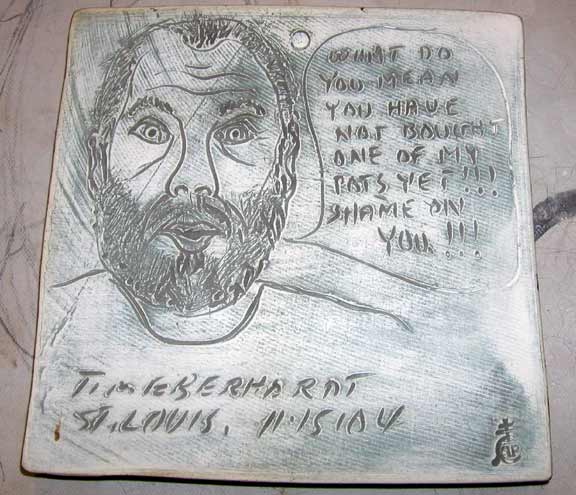 WHAT DO
YOU MEAN
YOU HAVE
NOT BOUGHT
ONE OF MY
POTS YET!!!
SHAME ON
YOU!!!
TIM EBERHARDT
ST. LOUIS, 11.15.04